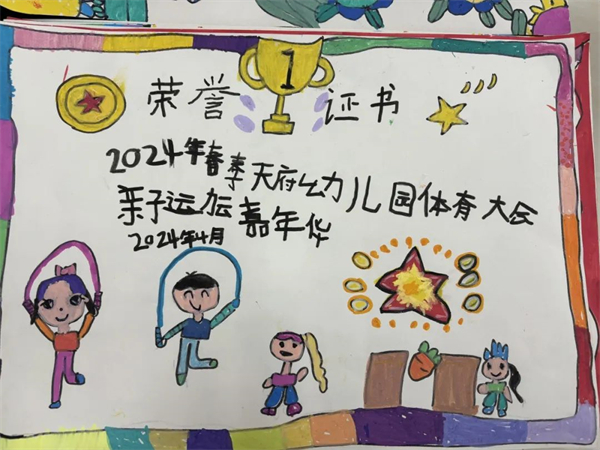 荣誉证书
1
2024年春季天府幼儿园体育大会
亲子运动嘉年华
2024年4月